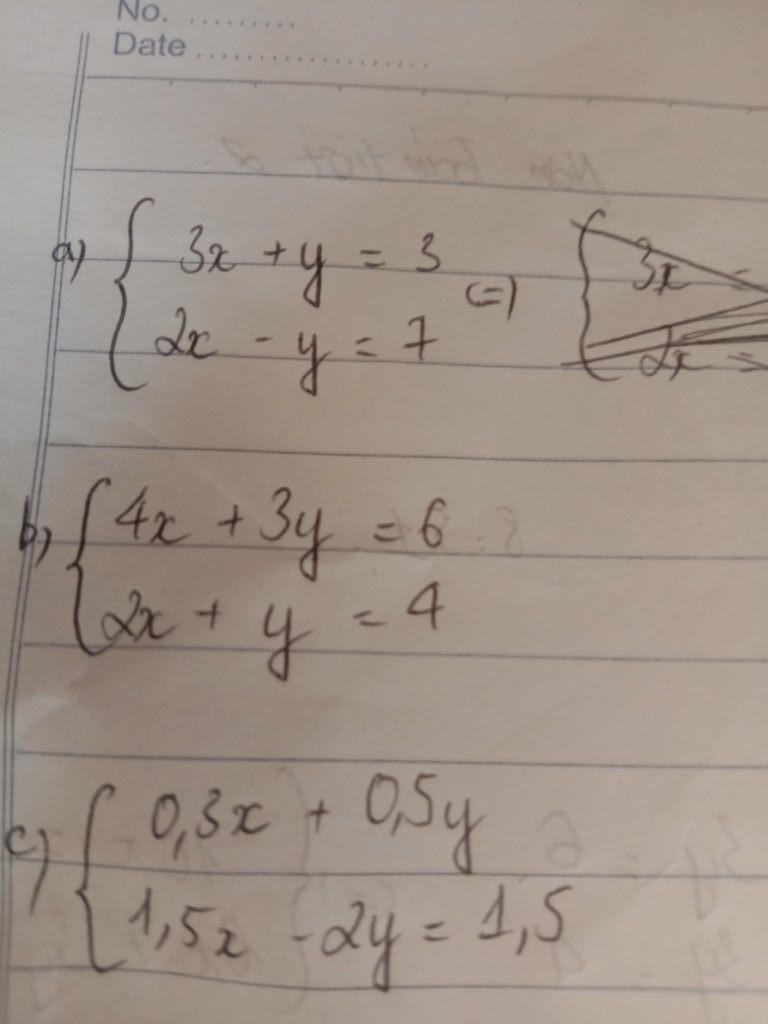 No. .........
Date ...................
a) { 3x + y = 3
2x - y = 7 <=> { 3x =
2x =
b) { 4x + 3y = 6
2x + y = 4
c) { 0,3x + 0,5y
1,5x - 2y = 1,5